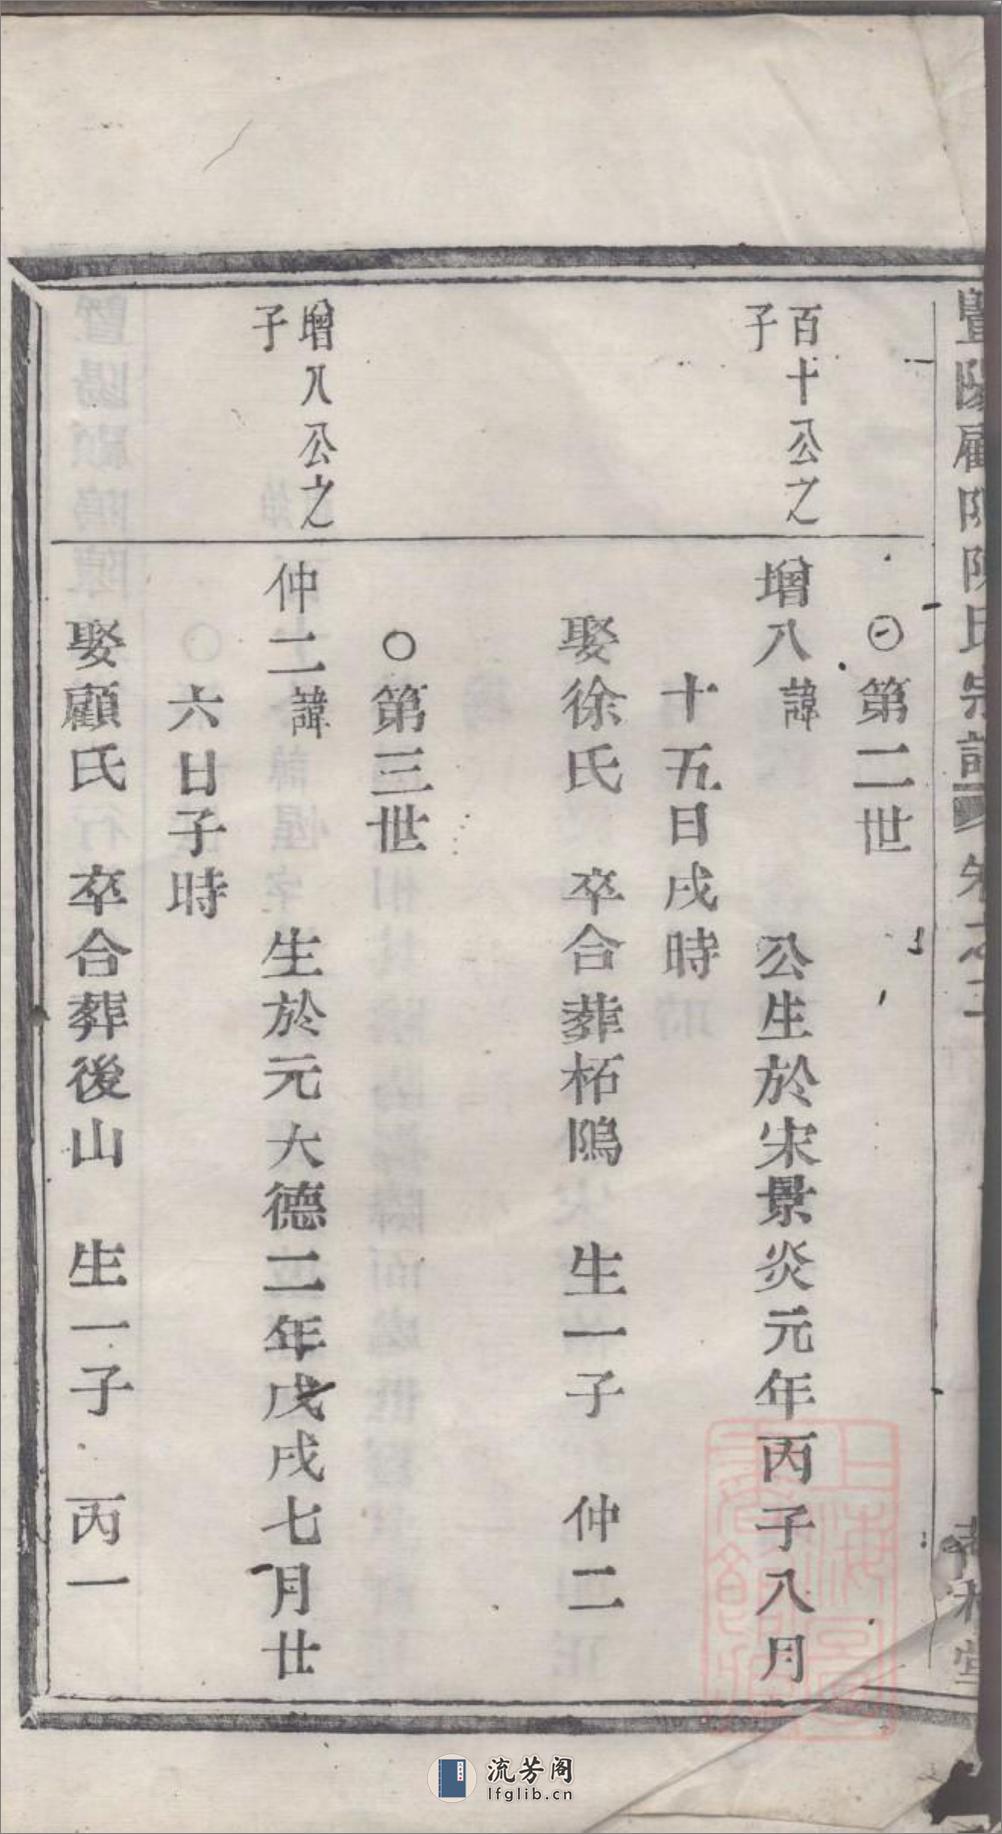 暨陽顧隖陳氏宗譜 卷之二
㊀第二世
百十公之子
增八諱 公生於宋景炎元年丙子八月
十五日戌時
娶徐氏 卒合葬柘隖 生一子 仲二
○第三世
增八公之子
仲二諱 生於元大德二年戊戌七月廿
六日子時
娶顧氏 卒合葬後山 生一子 丙一
流芳阁
lfglib.cn